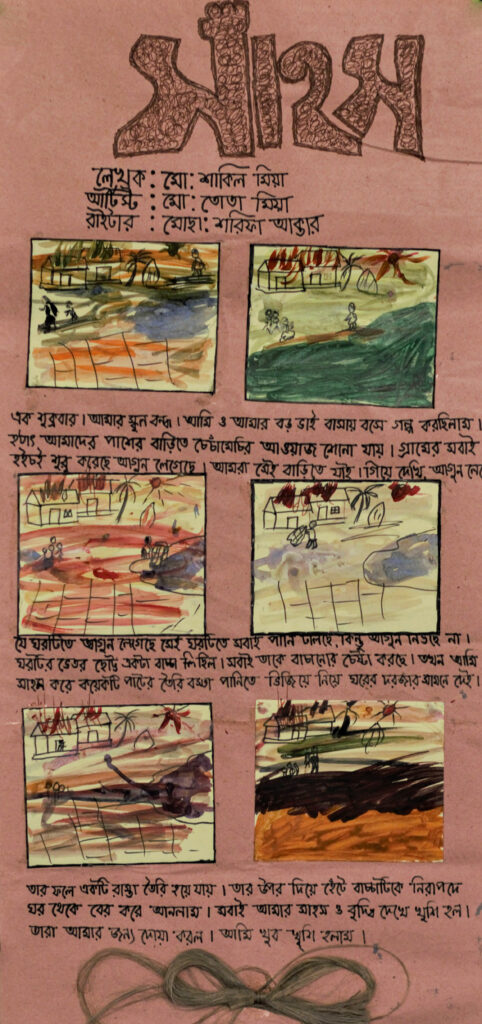 সাহস
লেখক : মো: শাকিল মিয়া
আর্টিস্ট : মো: তোতা মিয়া
রাইটার : মোছা: শরিফা আক্তার
এক শুক্রবার । আমার স্কুল বন্ধ । আমি ও আমার বড় ভাই বাসায় বসে গল্প করছিলাম ।
হঠাৎ আমাদের পাশের বাড়িতে চেঁচামেচির আওয়াজ শোনা যায় । গ্রামের সবাই
হইচই শুরু করেছে আগুন লেগেছে । আমরা সেই বাড়িতে যাই । গিয়ে দেখি আগুন
যে ঘরটিতে আগুন লেগেছে সেই ঘরটিতে সবাই পানি ঢালছে কিন্তু আগুন নিভছে না ।
ঘরটির ভেতর ছোট্ট একটা বাচ্চা ছিল । সবাই তাকে বাচানোর চেষ্টা করছে । তখন আমি
সাহস করে কয়েকটি পাটের তৈরি বস্তা পানিতে ভিজিয়ে নিয়ে ঘরের দরজার সামনে দেই ।
তার ফলে একটি রাস্তা তৈরি হয়ে যায় । তার উপর দিয়ে হেঁটে বাচ্চাটিকে নিরাপদে
ঘর থেকে বের করে আনলাম । সবাই আমার সাহস ও বুদ্ধি দেখে খুশি হল ।
তারা আমার জন্য দোয়া করল । আমি খুব খুশি হলাম ।